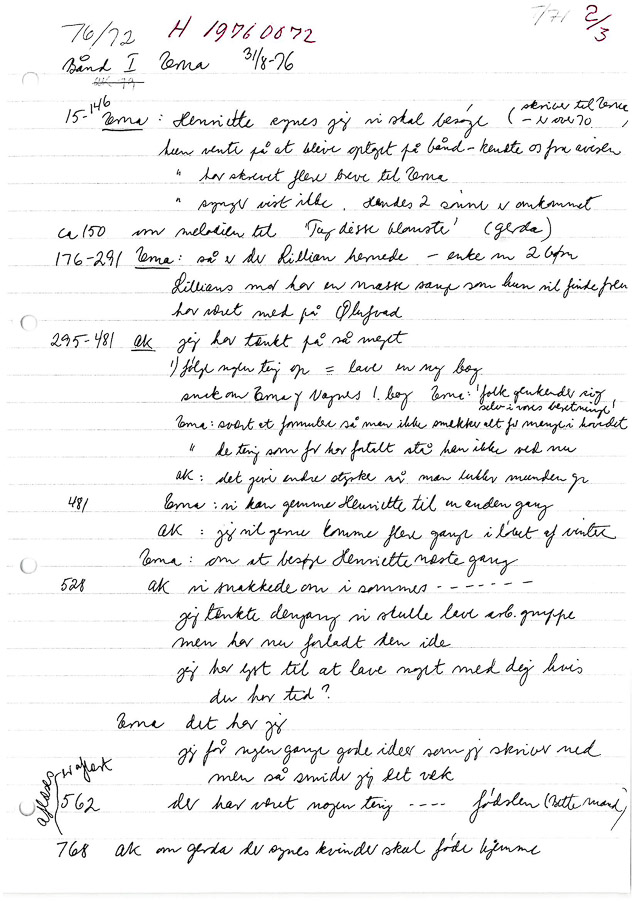 76/72 H 19760072 7/71 2/3
Bånd I Erna 31/8-76
15-146 Erna : Henriette synes jeg vi skal besøge (skriver til Erna
- er over 70)
hun vente på at blive optaget på bånd - kendte os fra avisen
" har skrevet flere breve til Erna
" synger vist ikke. Hendes 2 sønner er omkommet
ca 150 om melodien til 'Tag disse blomster' (gerda)
176-291 Erna : så er der Lillian hernede - enke m 2 børn
Lillians mor har en masse sange som hun vil finde frem
har været med på Ølufvad
295-481 AK jeg har tænkt på så meget
1) følge nogen ting op = lave en ny bog
snak om Erna og Vagnes 1. bog Erna: 'folk genkender sig
selv i vores beretninger'
Erna: svært at formulere så man ikke smækker alt for mange i hovedet
" de ting som far har fortalt stå han ikke ved nu
AK : det giver andre styrke så man lukker munden op
481 Erna : vi kan gemme Henriette til en anden gang
AK : jeg vil gerne komme flere gange i løbet af vinter
Erna : om at besøge Henriette næste gang
528 AK vi snakkede om i sommer - - - - - - -
jeg tænkte dengang vi skulle lave arb. gruppe
men har nu forladt den ide
jeg har lyst til at lave noget med dig hvis
du har tid?
Erna det har jeg
jeg får nogen gange gode ideer som jeg skriver ned
men så smider jeg det væk
562 der har været nogen ting - - - - fødslen (Bette mand)
768 AK om gerda der synes kvinder skal føde hjemme